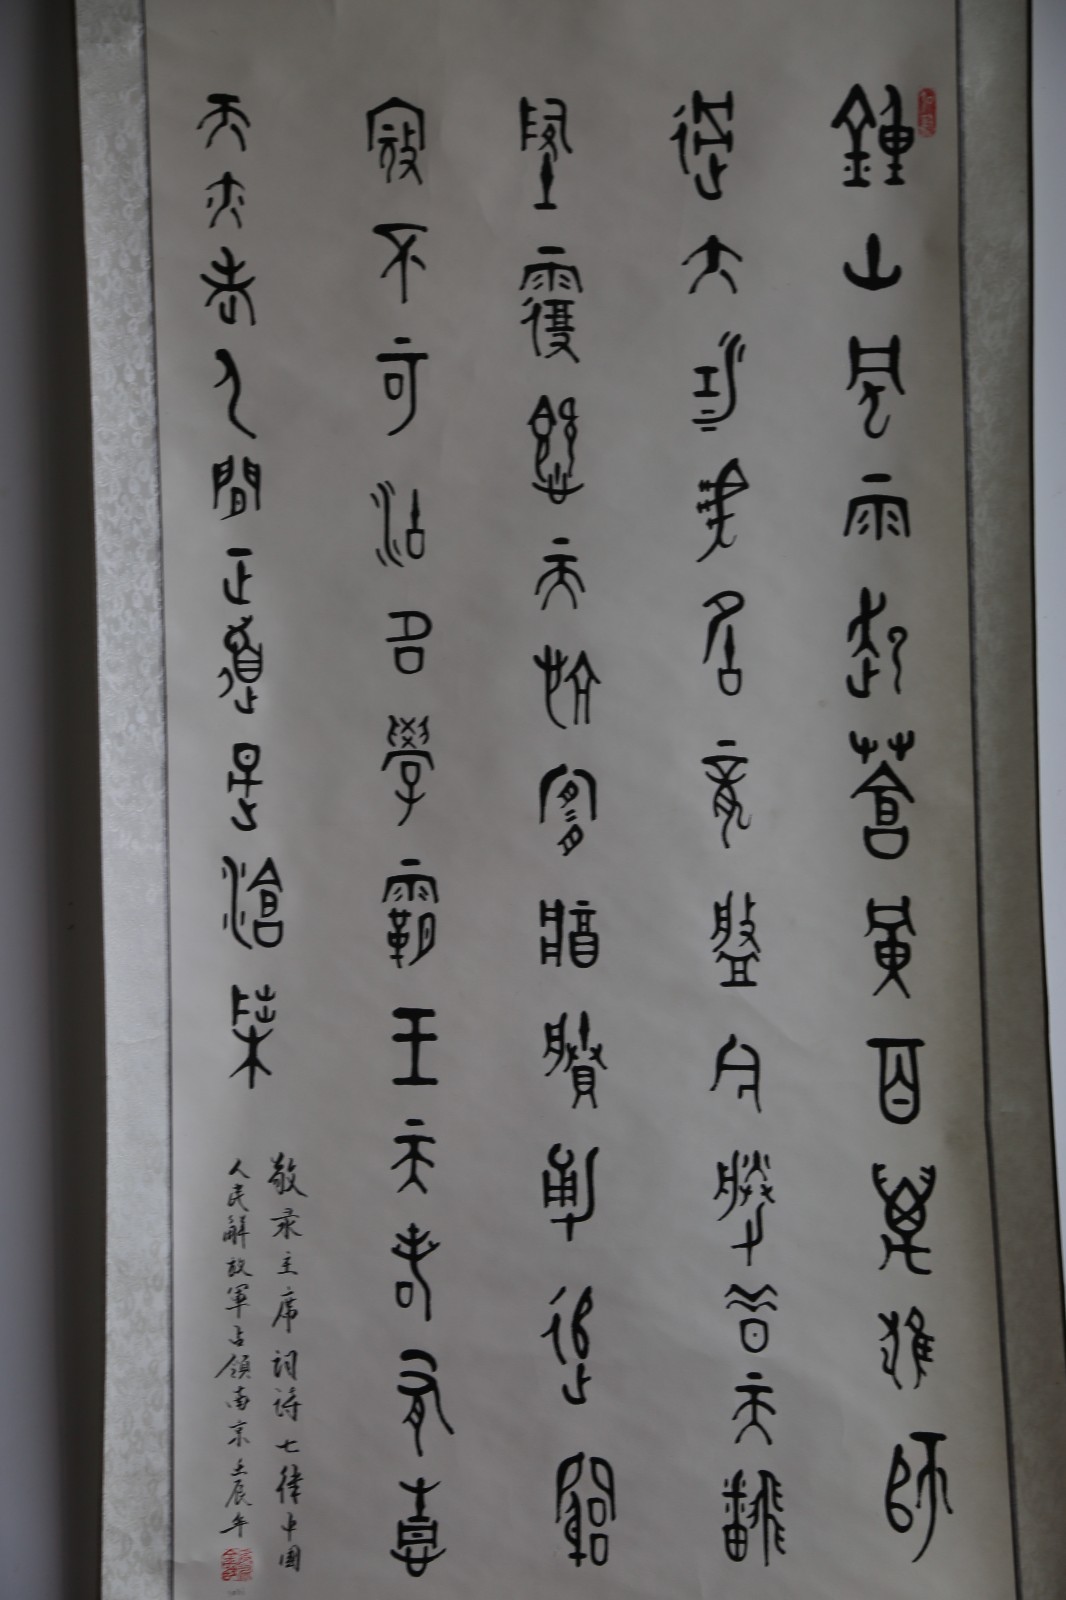 鍾山風雨起蒼黃百萬雄師
過大江虎踞龍盤今勝昔天翻
地覆慨而慷宜將剩勇追窮
寇不可沽名學霸王天若有情
天亦老人間正道是滄桑
敬录主席詞詩七律中国
人民解放軍占領南京壬辰年